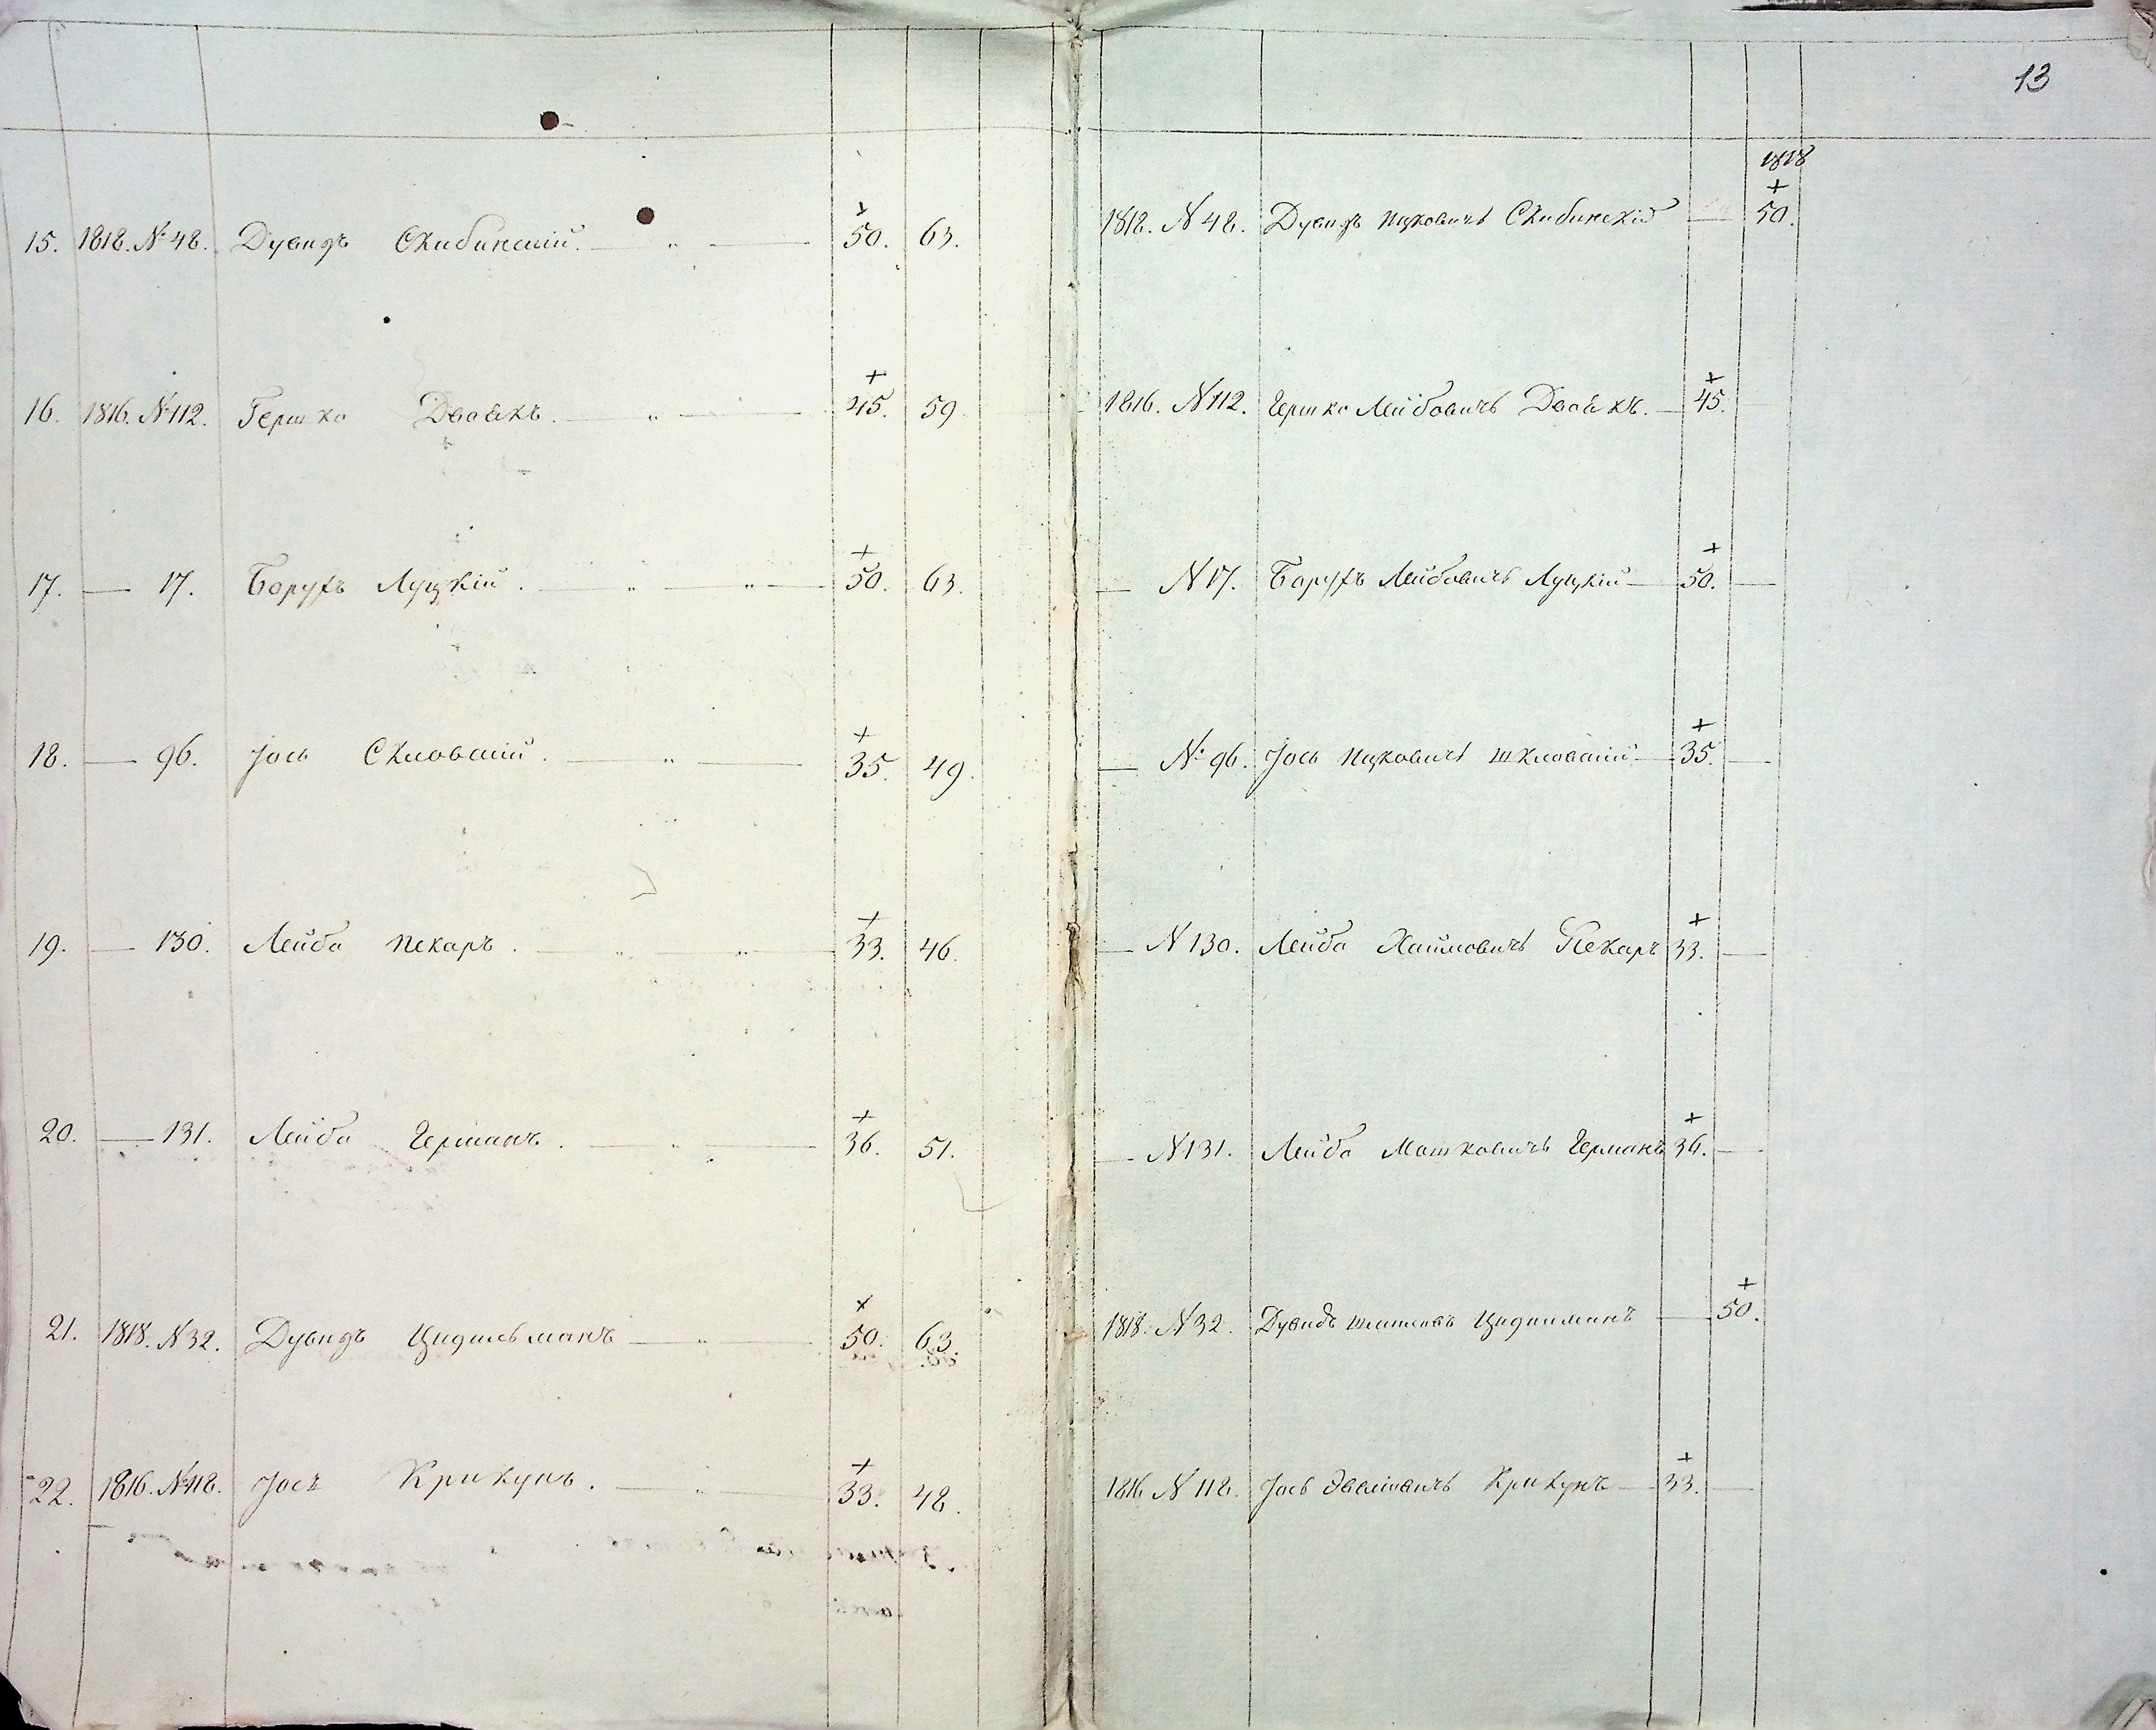 13
1818
+ +
15. 1818. № 48. Дувидъ Скибинскій. — " — 50. 63. 1818. N 48. Дувидъ Ицковичъ Скибинскій — 50.
+ +
16. 1816. № 112. Гершко Двойкъ. — " — 45. 59. 1816. N 112. Гершко Лейбовичъ Двойкъ. — 45.
+ +
17. — 17. Борухъ Луцкій. — " — " — 50. 63. — N 17. Борухъ Лейбовичъ Луцкій — 50. —
+ +
18. — 96. Іось Скловскій. — " — 35. 49. — № 96. Іось Ицковичъ Шкловскій — 35. —
+ +
19. — 130. Лейба Пекаръ. — " — " — 33. 46. — N 130. Лейба Хаимовичъ Пекаръ 33. —
+ +
20. — 131. Лейба Германъ. — " — 36. 51. — N 131. Лейба Мошковичъ Германъ 36. —
+ +
21. 1818. N 32. Дувидъ Цидильманъ — " — 50. 63. 1818. N 32. Дувидъ Цидилманъ — 50.
+ +
22. 1816. № 118. Іось Крикунъ. — " — 33. 48. 1816 N 118. Іось Крикунъ — 33. —